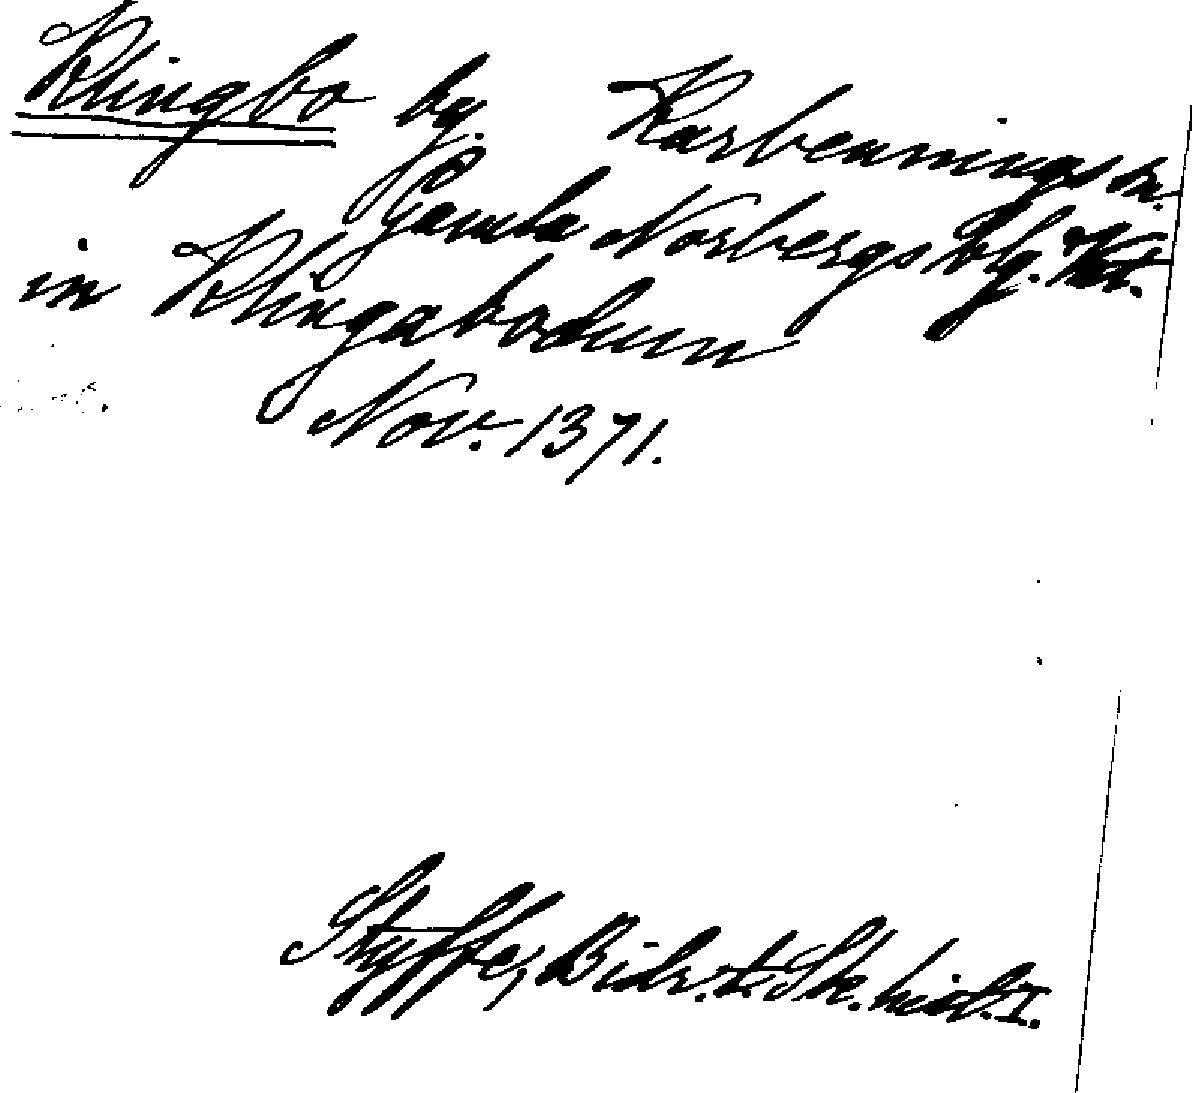 Klingbo by. Karbennings sn.
Gamla Norbergs bg. Vstm.
in Klingabodum
Nov. 1371.
Styffe, Bidr. t. Sk. hist. I.